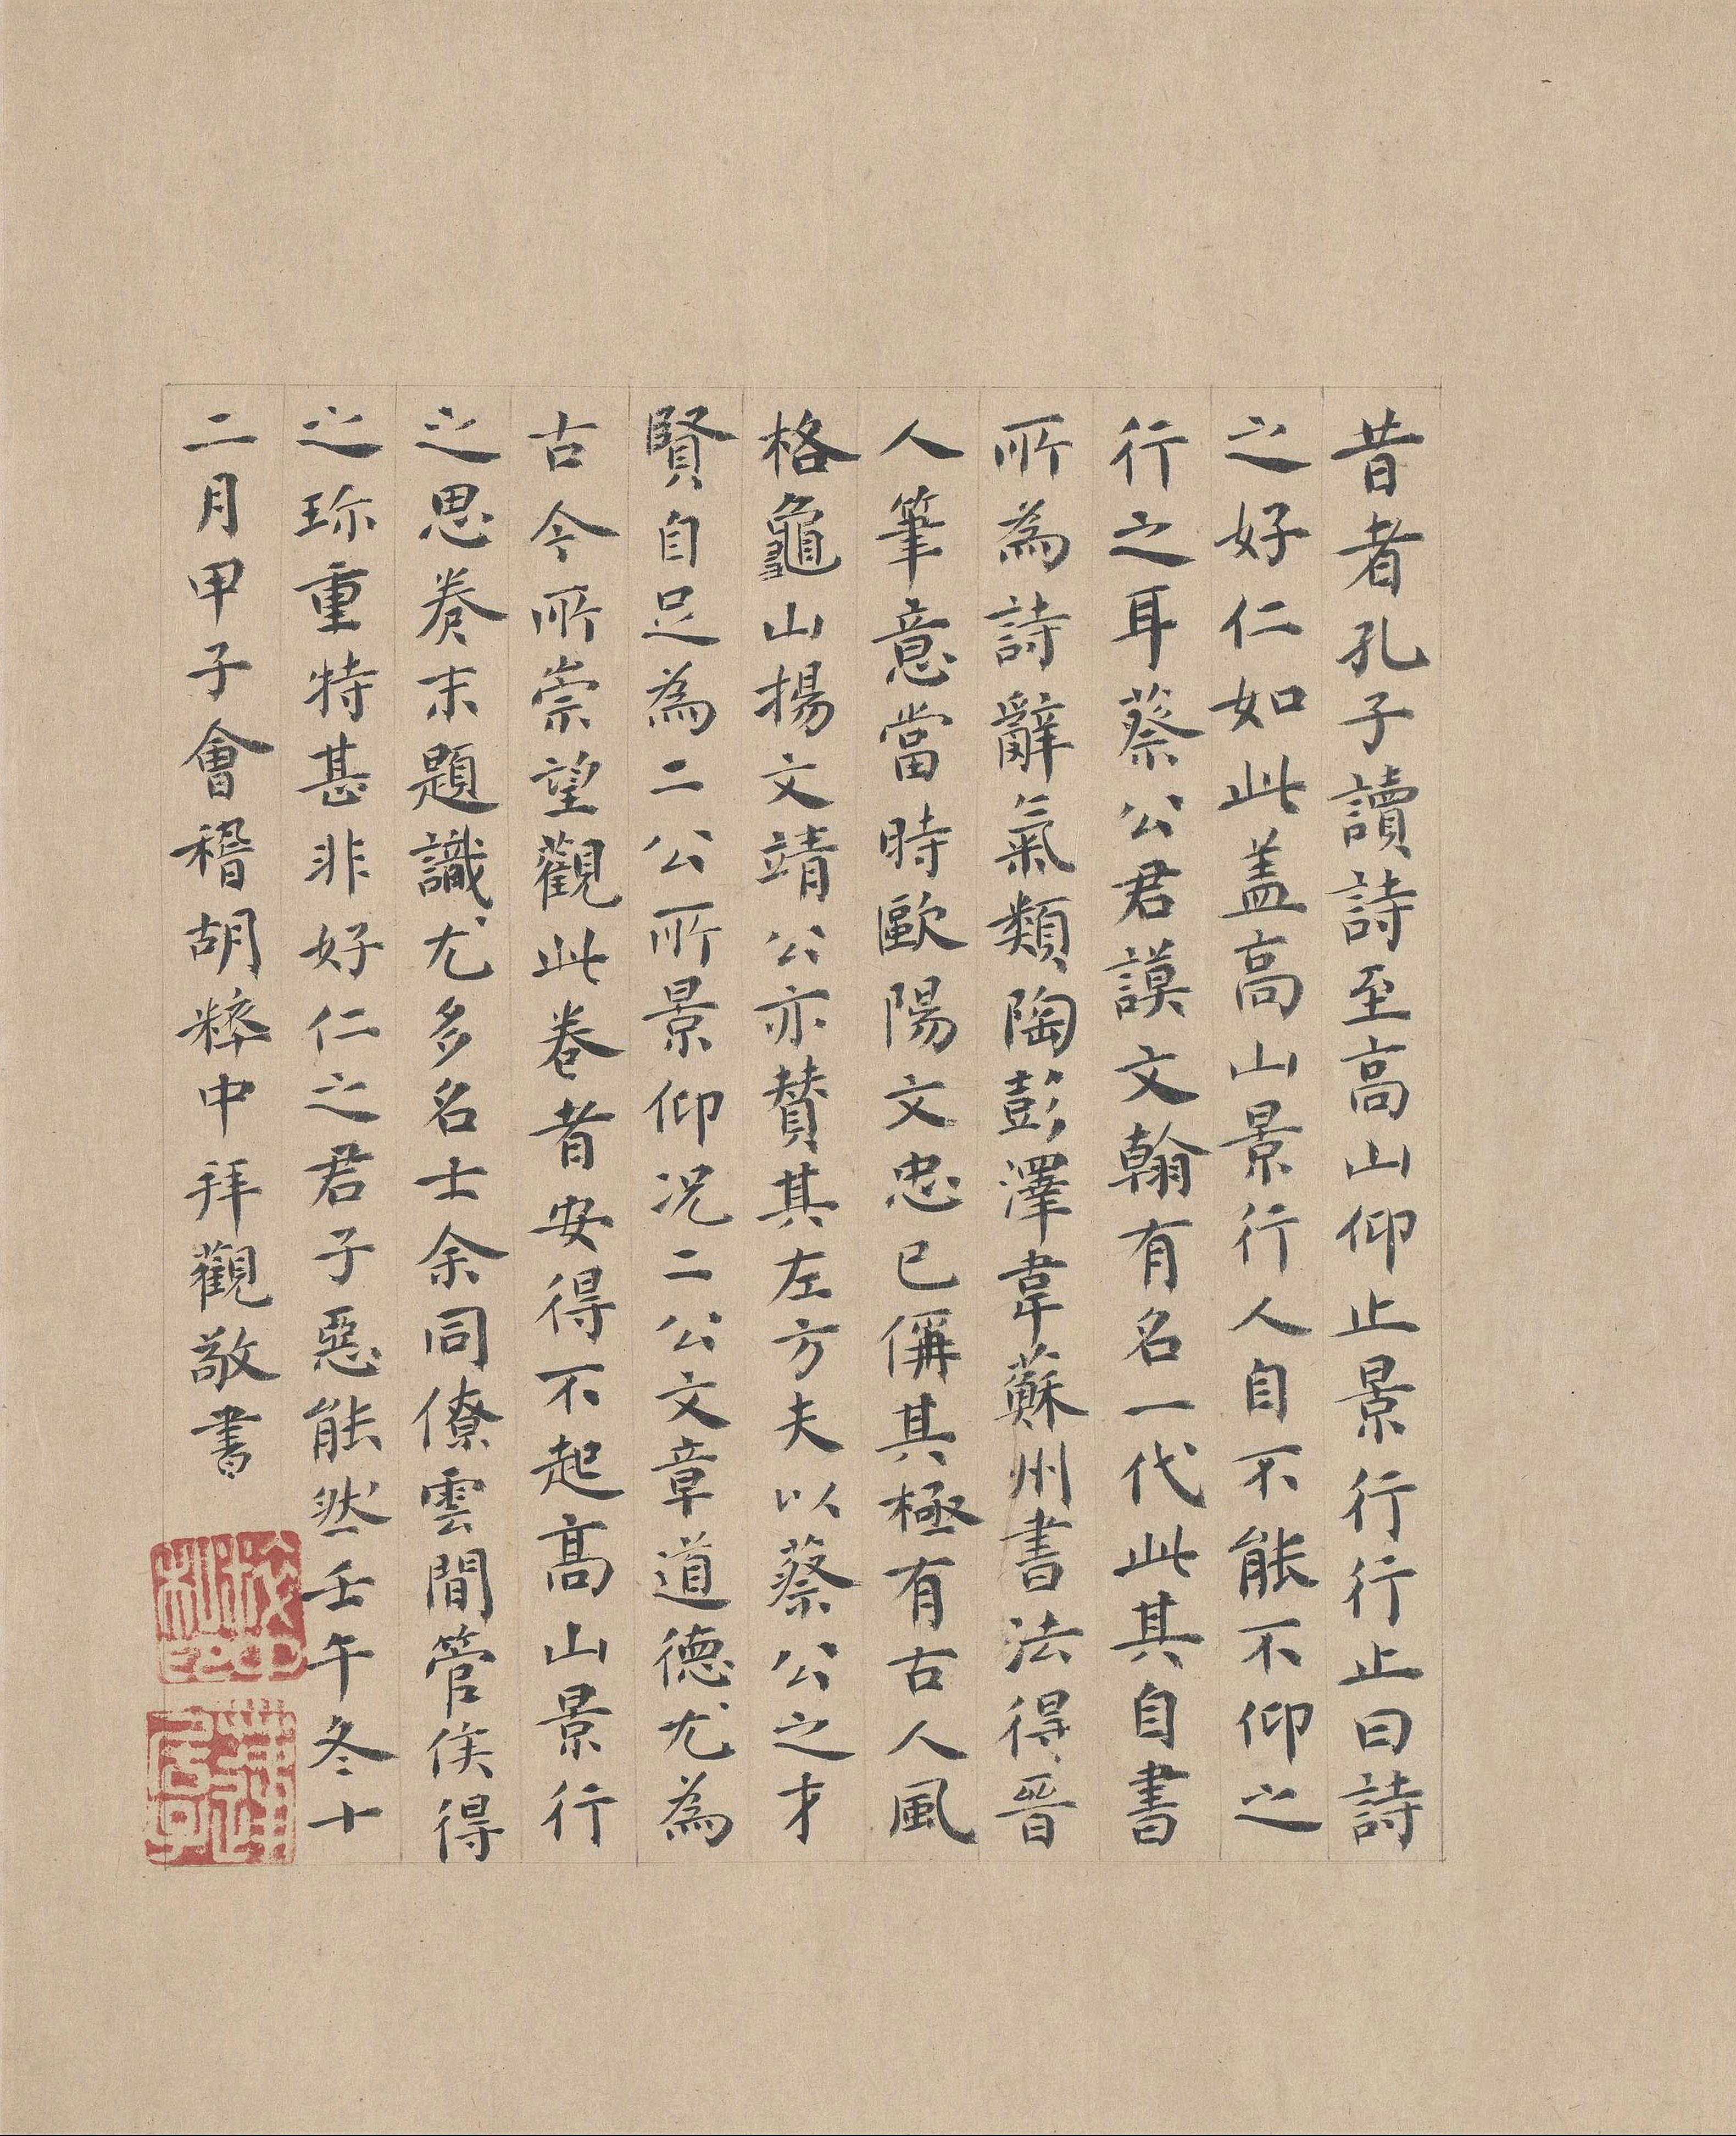 昔者孔子讀詩至高山仰止景行行止曰詩
之好仁如此盖高山景行人自不能不仰之
行之耳蔡公君謨文翰有名一代此其自書
所為詩辭氣類陶彭澤韋蘇州書法得晉
人筆意當時歐陽文忠已偁其極有古人風
格龜山揚文靖公亦贊其左方夫以蔡公之才
賢自足為二公所景仰况二公文章道德尤為
古今所崇望觀此卷者安得不起高山景行
之思卷末題識尤多名士余同僚雲間管侯得
之珎重特甚非好仁之君子惡能然壬午冬十
二月甲子會稽胡粹中拜觀敬書